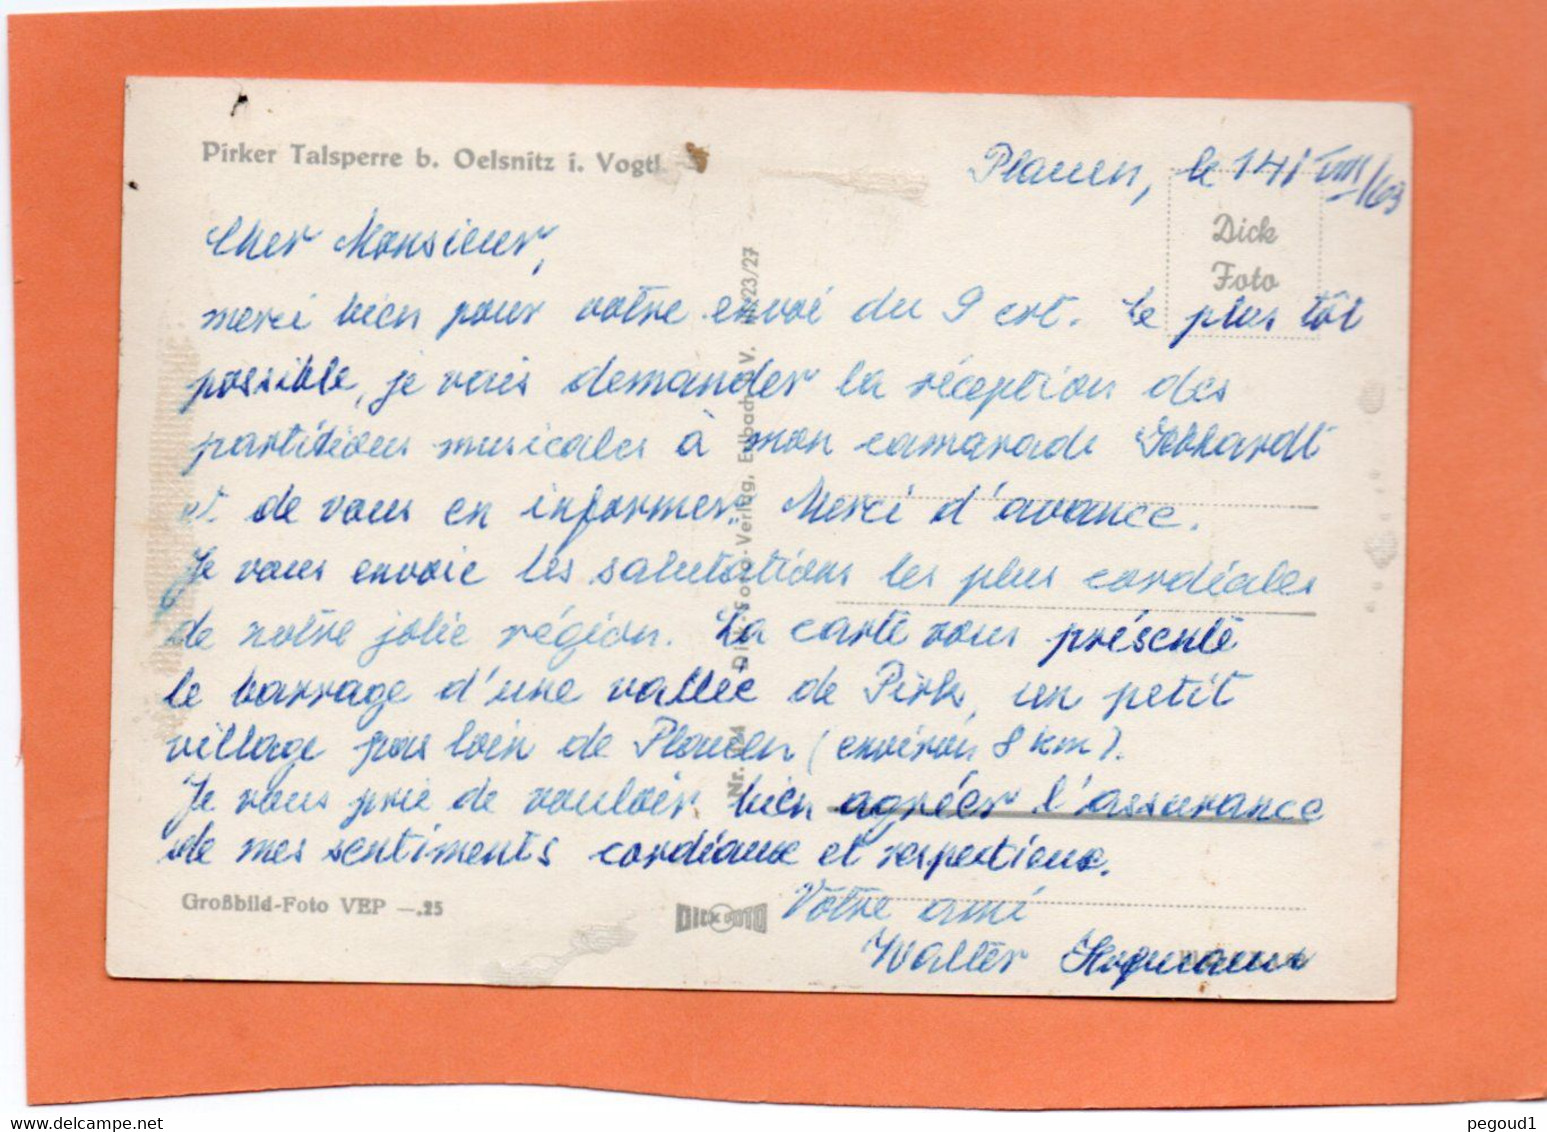 Pirker Talsperre b. Oelsnitz i. Vogtl.
Plauen, le 14/VIII/63
Dick
Foto
Cher Monsieur,
merci bien pour votre envoi du 9 crt. Le plus tôt
possible, je vais demander la réception des
partitions musicales à mon camarade
et de vous en informer. Merci d'avance.
Je vous envoie les salutations les plus cordiales
de notre jolie région. La carte vous présente
le barrage d'une vallée de Pirk, un petit
village pas loin de Plauen (environ 8 km).
Je vous prie de vouloir bien agréer l'assurance
de mes sentiments cordiaux et respectieux.
Votre ami
Walter
Großbild-Foto VEP —.25
DICK FOTO
Dick-Foto-Verlag, Erlbach i. V.
pegoud1